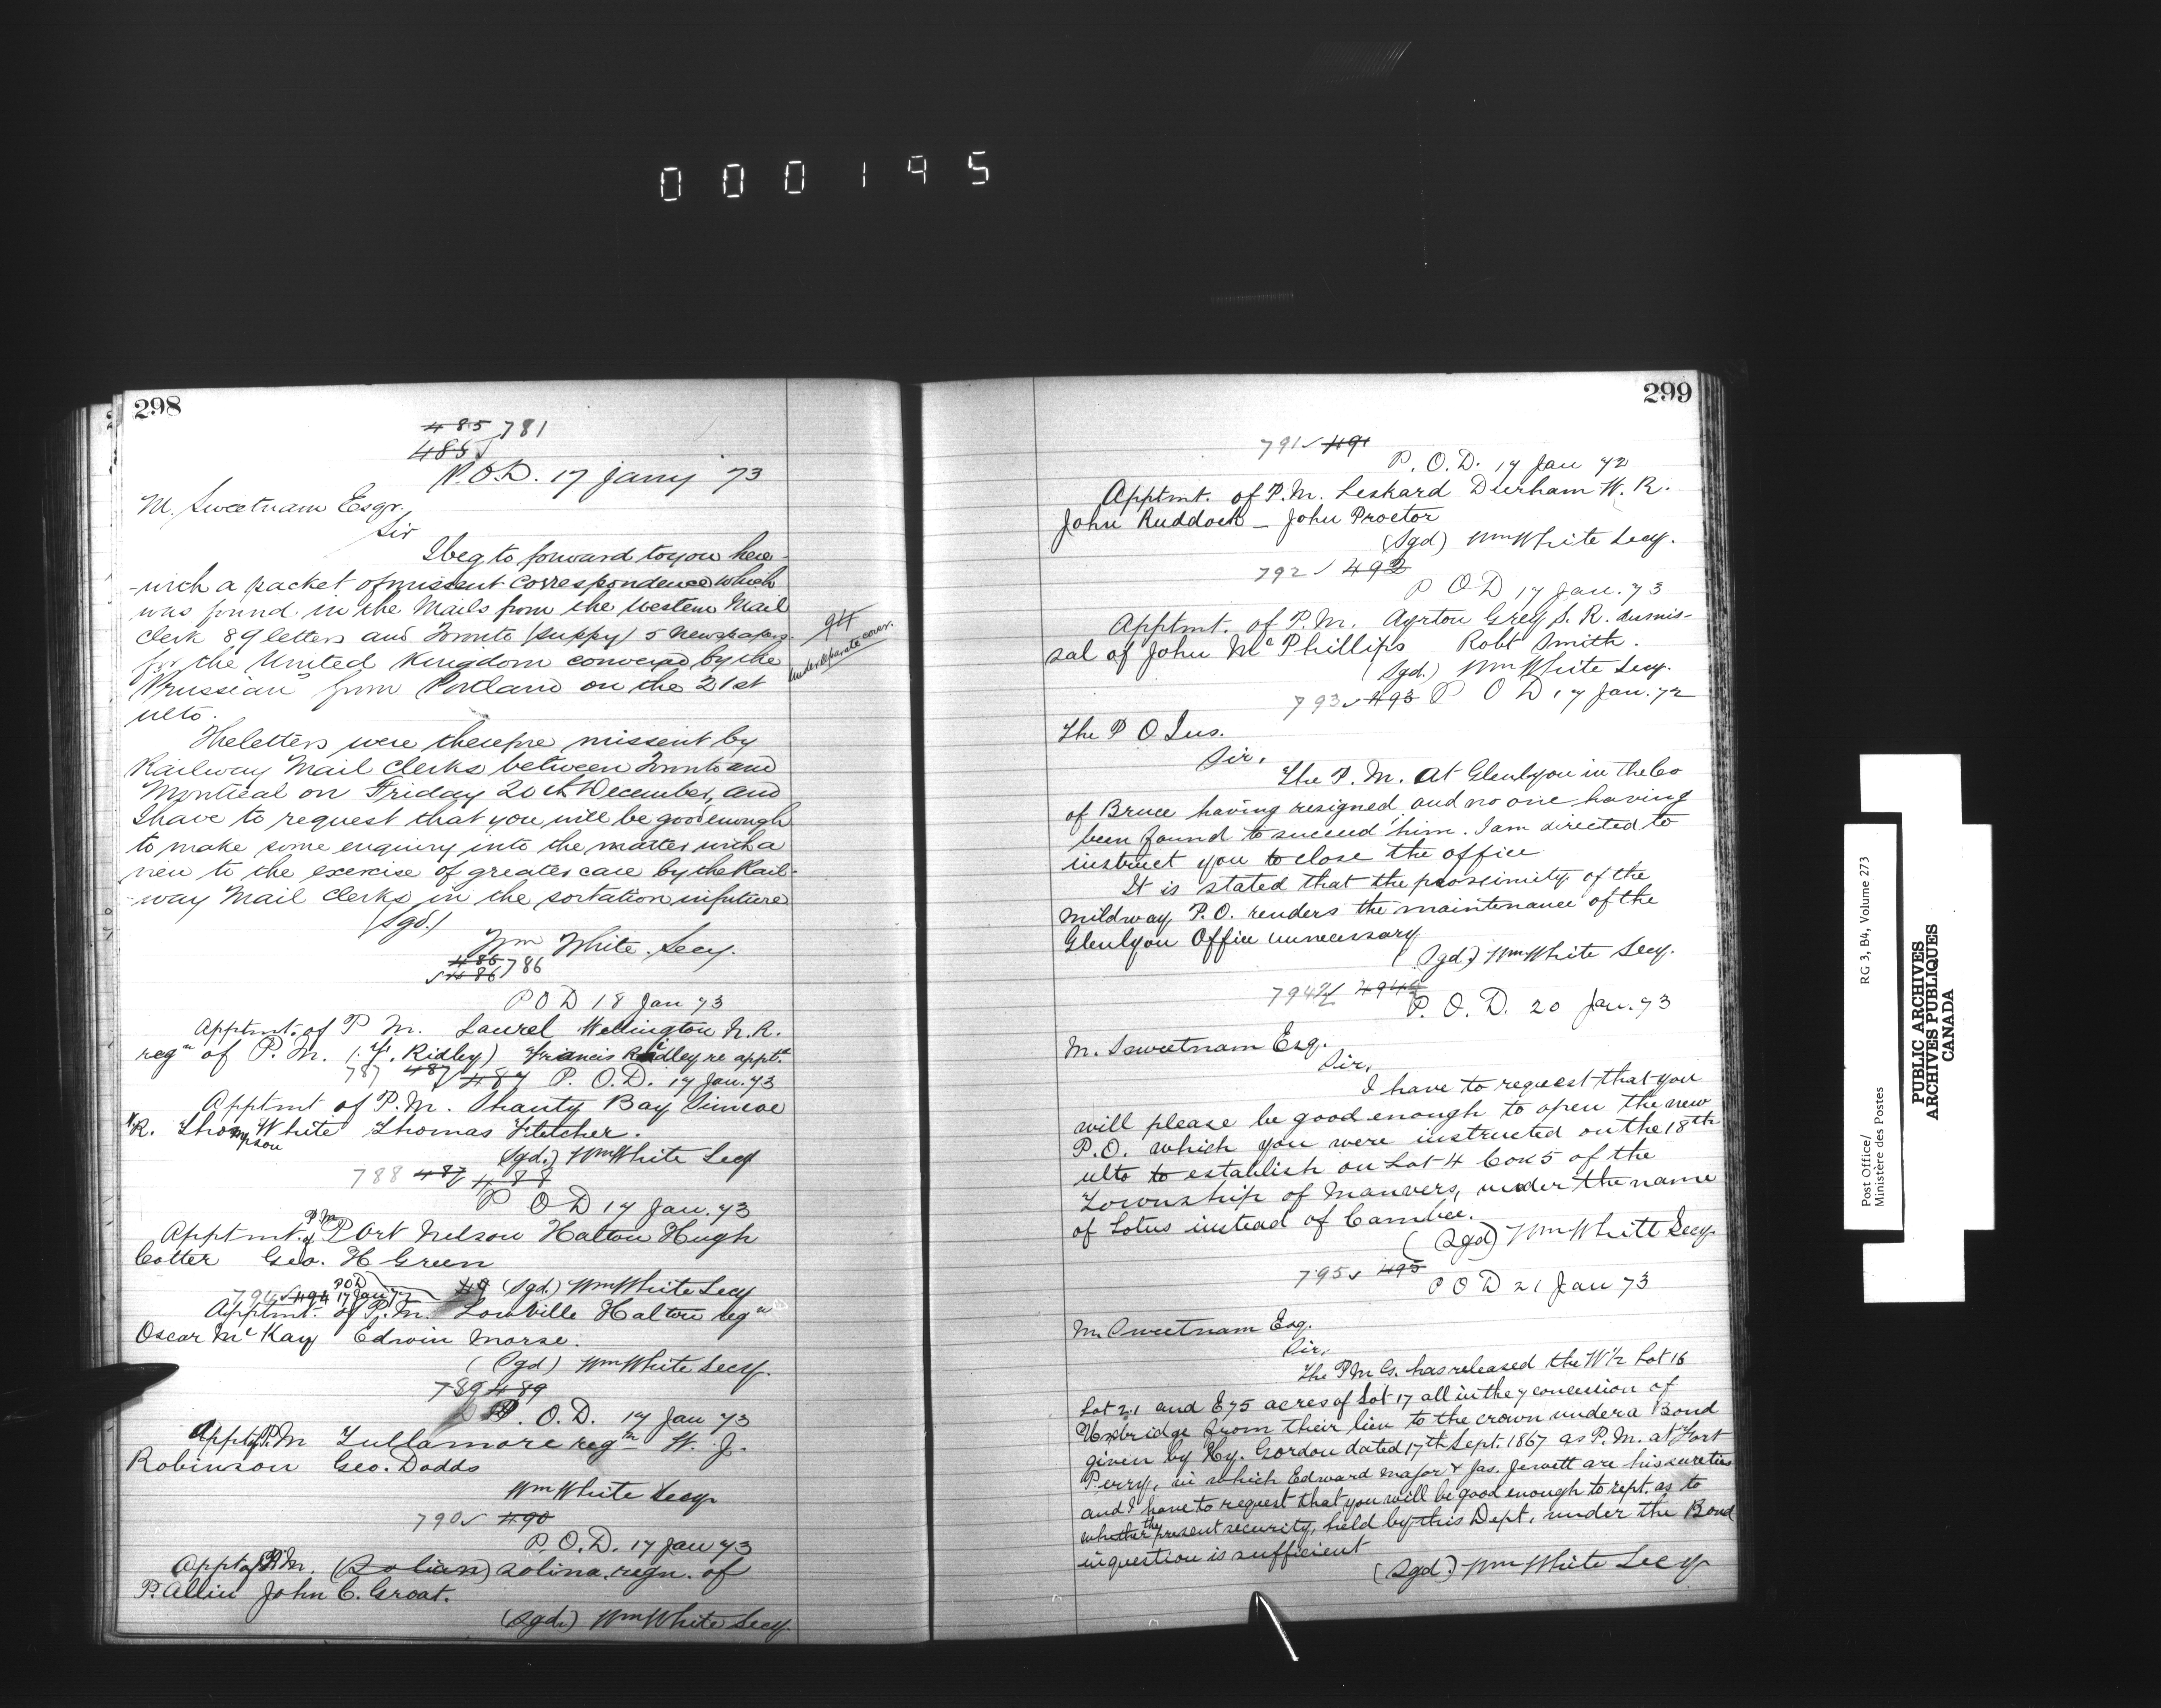 000195
298
485 781
485
P.O.D. 17 Jany 73
M. Sweetnam Esqr.
Sir
I beg to forward to you here-
-with a packet of missent correspondence which
was found in the Mails from the Western Mail
Clerk 89 letters and Toronto (suppy) 5 newspapers
for the United Kingdom conveyed by the
"Prussian" from Portland on the 21st
ulto.
under separate cover.
The letters were therefore missent by
Railway Mail Clerks between Toronto and
Montreal on Friday 20th December, and
I have to request that you will be good enough
to make some enquiry into the matter with a
view to the exercise of greater care by the Rail-
-way Mail Clerks in the sortation in future
(Sgd.)
Wm White. Secy.
486 786
486
P O D 18 Jan 73
Apptmt. of P M. Laurel Wellington N. R.
regn of P. M. (F. Ridley) Francis Ridley re apptt
787 487 487 P. O. D. 17 Jan. 73
Apptmt of P. M. Shanty Bay Simcoe
N R. Thompson White Thomas Fletcher.
(Sgd.) Wm White Secy
788 487 488
P O D 17 Jan. 73
Apptmt. of P M Port Nelson Halton Hugh
Cotter Geo. H Green
(Sgd) Wm White Secy
794 494 POD 17 Jan 73
Apptmt. of P. M. Lowville Halton regn
Oscar McKay Edwin Morse.
(Sgd) Wm White Secy.
789 489
P. O. D. 17 Jan 73
Appt of P.M Tullamore regn W. J.
Robinson Geo. Dodds
Wm White Secy
790 490
P. O. D. 17 Jan 73
Appt of P.M. (Solian) Solina. regn. of
P. Allin John C. Groat.
(Sgd.) Wm White Secy.
299
791 491
P. O. D. 17 Jan 72
Apptmt. of P. M. Leskard Durham W. R.
John Ruddock - John Proctor
(Sgd) Wm White Secy.
792 492
P O D 17 Jan. 73
Apptmt. of P. M. Ayrton Grey S. R. dismis-
sal of John McPhillips Robt Smith.
(Sgd.) Wm White Secy.
793 493 P O D 17 Jan. 72
The P O Ins.
Sir,
The P. M. at Glenlyon in the Co
of Bruce having resigned and no one having
been found to succeed him. I am directed to
instruct you to close the office
It is stated that the proximity of the
Mildway P. O. renders the maintenance of the
Glenlyon Office unnecessary
(Sgd.) Wm White Secy.
794½ 494½
P. O. D. 20 Jan. 73
M. Sweetnam Esq.
Sir,
I have to request that you
will please be good enough to open the new
P. O. which you were instructed on the 18th
ulto to establish on Lot 4 Con 5 of the
Township of Manvers, under the name
of Lotus instead of Cambee.
(Sgd) Wm White Secy
795 495
P O D 21 Jan 73
M. Sweetnam Esq.
Sir,
The P M G. has released the W½ Lot 16
Lot 21 and E 75 acres of Lot 17 all in the 7 concession of
Uxbridge from their lien to the crown under a Bond
given by Hy. Gordon dated 17th Sept. 1867 as P. M. at Port
Perry, in which Edward Major & Jas. Jewett are his sureties
and I have to request that you will be good enough to rept. as to
whether the present security, held by this Dept, under the Bond
in question is sufficient
(Sgd.) Wm White Secy
Post Office/ RG 3, B4, Volume 273
Ministère des Postes
PUBLIC ARCHIVES
ARCHIVES PUBLIQUES
CANADA